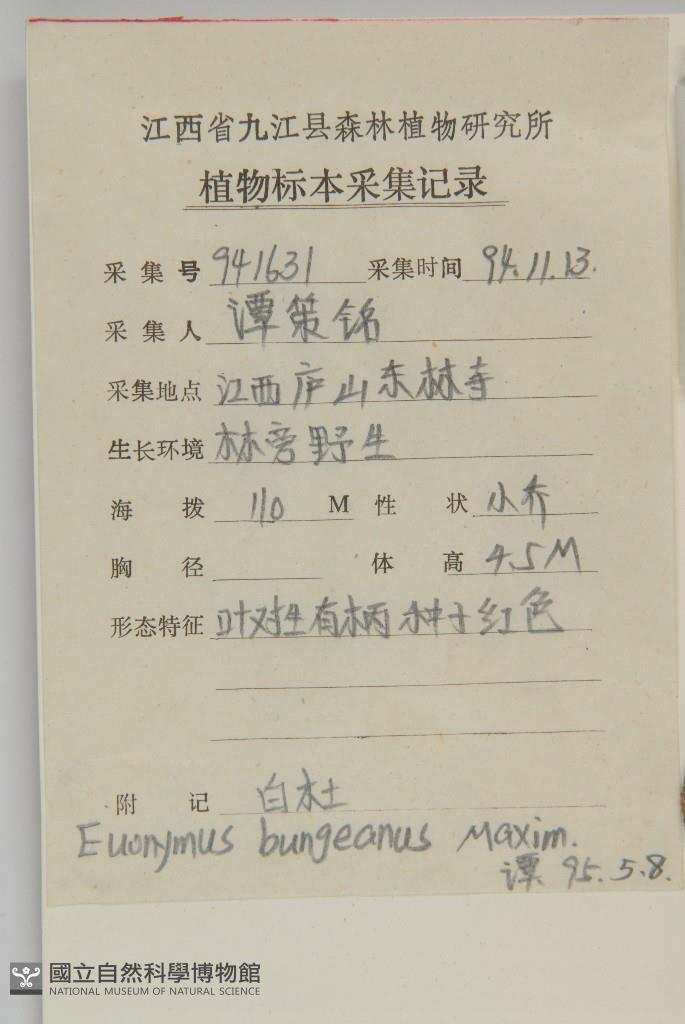 江西省九江县森林植物研究所
植物标本采集记录
采集号 941631 采集时间 94.11.13.
采集人 谭策铭
采集地点 江西庐山东林寺
生长环境 林旁野生
海拨 110 M 性状 小乔
胸径 体高 4.5M
形态特征 叶对生有柄 种子红色
附记 白杜
Euonymus bungeanus Maxim.
谭 95.5.8.
國立自然科學博物館
NATIONAL MUSEUM OF NATURAL SCIENCE